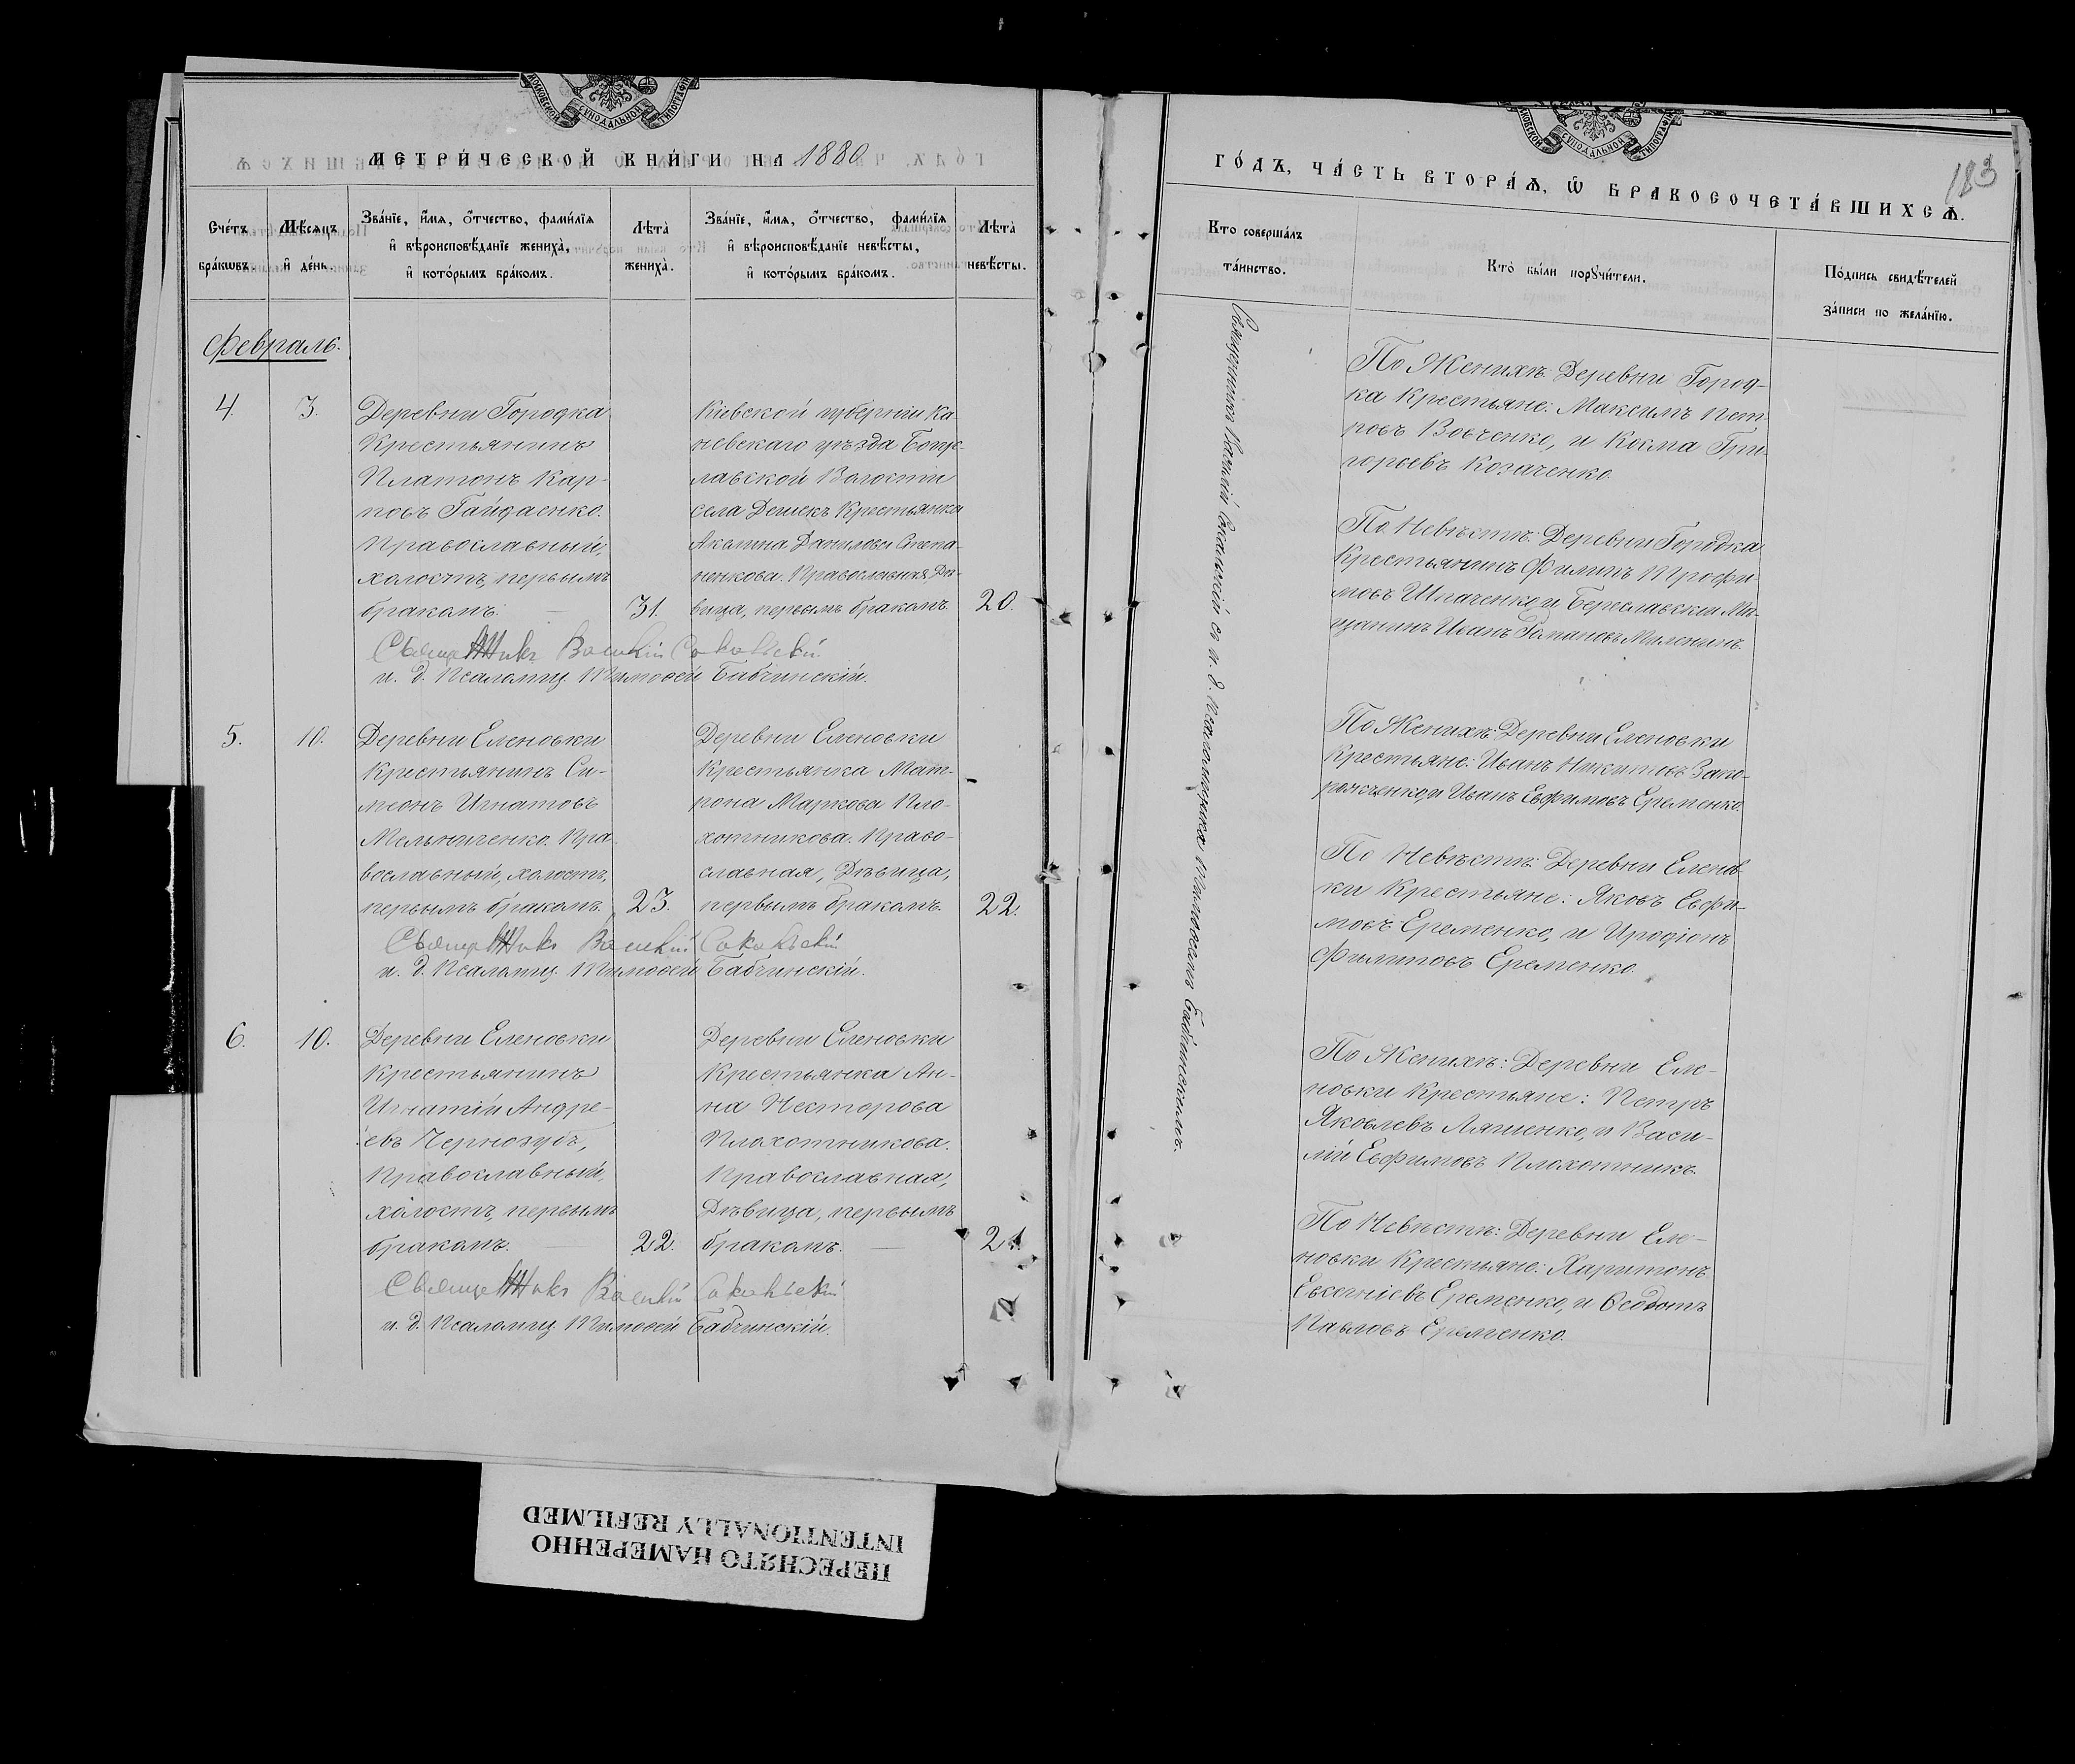 МОСКОВСКОЙ СѴНОДАЛЬНОЙ ТИПОГРАФІИ
МЕТРИ́ЧЕСКОЙ КНИ́ГИ НА 1880
Сче́тъ бра́кѡвъ.
Мѣ́сяцъ и҆ де́нь.
Зва́нїе, и҆́мѧ, ѻ҆́тчество, фами́лїѧ
и҆ вѣроисповѣ́данїе жениха̀,
и҆ кото́рымъ бра́комъ.
Лѣта̀
жениха̀.
Зва́нїе, и҆́мѧ, ѻ҆́тчество, фами́лїѧ
и҆ вѣроисповѣ́данїе невѣ́сты,
и҆ кото́рымъ бра́комъ.
Лѣта̀
невѣ́сты.
Февраль.
4.
3.
Деревни Городка
Крестьянинъ
Платонъ Кар-
повъ Гайдаенко.
Православный,
холостъ, первымъ
бракомъ.
31.
Кіевской губерніи Ка
невскаго уѣзда Богус-
лавской Волости
села Дешекъ Крестьянка
Акилина Данилова Степа-
ненкова. Православная, Дѣ-
вица, первымъ бракомъ.
20.
Священникъ Василій Сокальскій
и. д. Псаломщ. Тимоѳей Бабчинскій.
5.
10.
Деревни Еленовки
Крестьянинъ Си-
меонъ Игнатовъ
Мельниченко. Пра
вославный, холостъ,
первымъ бракомъ.
23.
Деревни Еленовки
Крестьянка Мат-
рона Маркова Пло-
хотникова. Право-
славная, Дѣвица,
первымъ бракомъ.
22.
Священникъ Василій Сокальскій
и. д. Псаломщ. Тимоѳей Бабчинскій.
6.
10.
Деревни Еленовки
Крестьянинъ
Игнатій Андре-
евъ Чернозубъ,
Православный,
холостъ, первымъ
бракомъ.
22.
Деревни Еленовки
Крестьянка Ан-
на Несторова
Плохотникова.
Православная,
Дѣвица, первымъ
бракомъ.
21.
Священникъ Василій Сокальскій
и. д. Псаломщ. Тимоѳей Бабчинскій.
МОСКОВСКОЙ СѴНОДАЛЬНОЙ ТИПОГРАФІИ
183
ГО́ДЪ, ЧА́СТЬ ВТОРА́Ѧ, Ѡ҆ БРАКОСОЧЕТА́ВШИХСѦ.
Кто соверша́лъ
та́инство.
Кто̀ бы́ли порꙋчи́тели.
По́дпись свидѣ́телей
за́писи по жела́нїю.
Священникъ Василій Сокальскій съ и. д. Псаломщика Тимоѳеемъ Бабчинскимъ.
По Женихѣ: Деревни Город-
ка Крестьяне: Максимъ Пет-
ровъ Вовченко, и Косма Гри-
горьевъ Козаченко.
По Невѣстѣ: Деревни Городка
Крестьянинъ Филипъ Трофи
мовъ Шпаченко, и Бериславскій Мѣ-
щанинъ Иванъ Романовъ
По Женихѣ: Деревни Еленовки
Крестьяне: Иванъ Никитовъ Запо-
рожченко, и Иванъ Евфимовъ Еременко.
По Невѣстѣ: Деревни Еленов
ки Крестьяне: Яковъ Евфи-
мовъ Еременко, и Иродіонъ
Филиповъ Еременко.
По Женихѣ: Деревни Еле-
новки Крестьяне: Петръ
Яковлевъ Ляшенко, и Васи-
лій Евфимовъ Плохотникъ.
По Невѣстѣ: Деревни Еле-
новки Крестьяне: Харитонъ
Евсеніевъ Еременко, и Ѳеодотъ
Павловъ Еременко.
ПЕРЕСНЯТО НАМЕРЕННО
INTENTIONALLY REFILMED